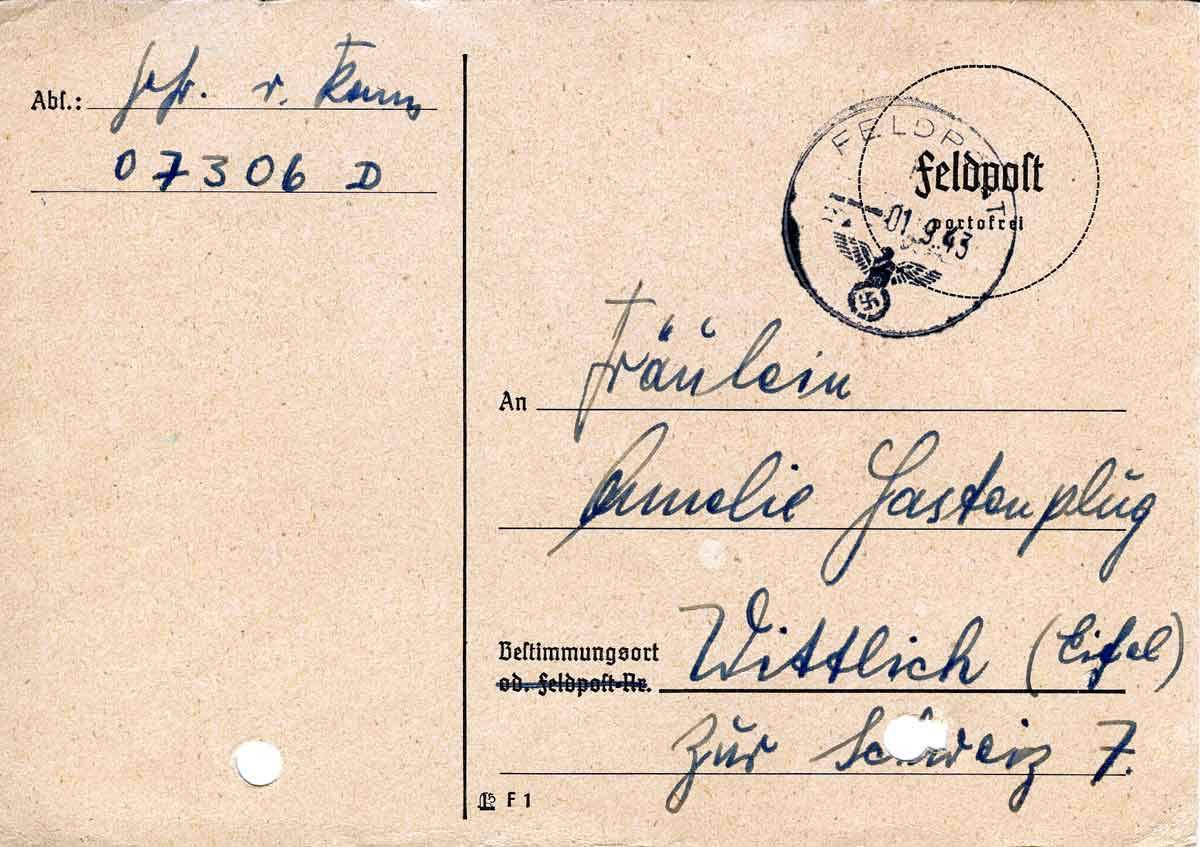 Abs.: Gefr. v.
07306 D
FELDPOST
Feldpost
portofrei
01.9.43
An Fräulein
Amelie Hastenplug
Bestimmungsort Wittlich (Eifel)
od. Feldpost-Nr.
Zur Schweiz 7.
F 1